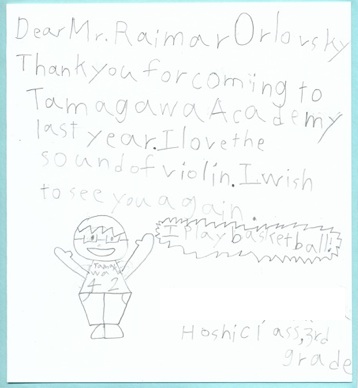 Dear Mr. Raimar Orlovsky
Thank you for coming to
Tamagawa Academy
last year. I love the
sound of violin. I wish
to see you again.
I play basketball!
42
Hoshi class, 3rd
grade